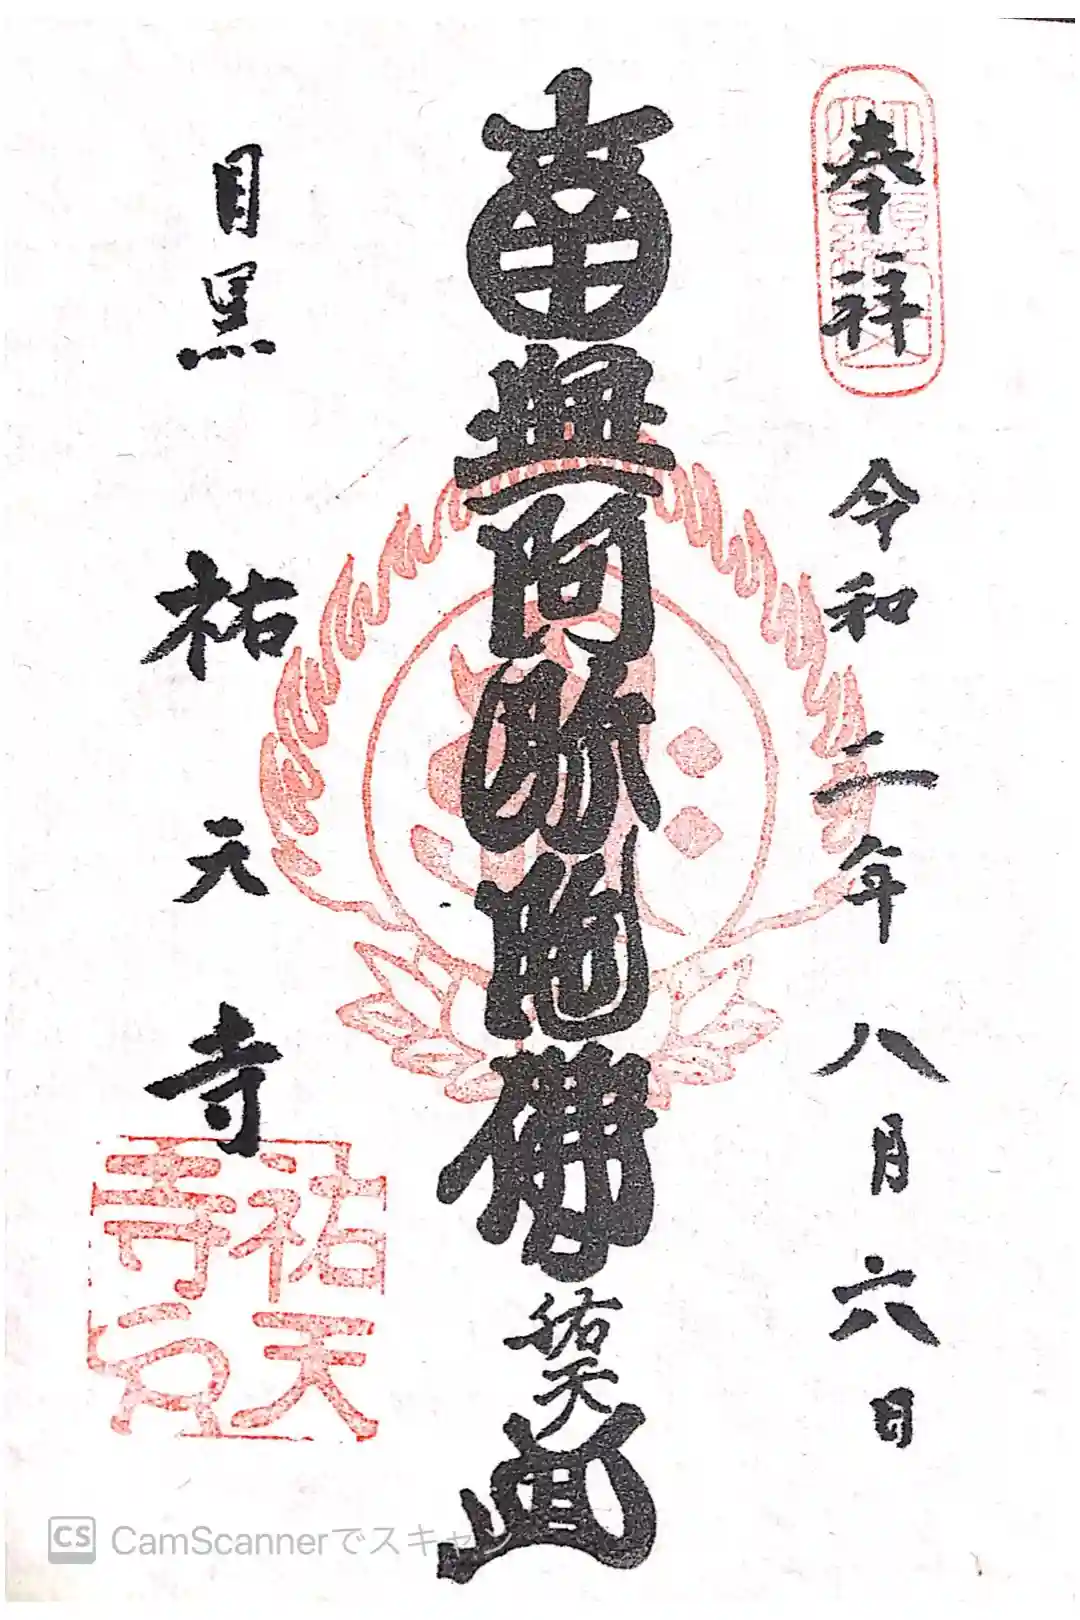 奉拝
令和二年八月六日
南無阿弥陀佛
祐天
目黒
祐天寺
祐天寺印
CS CamScannerでスキャン